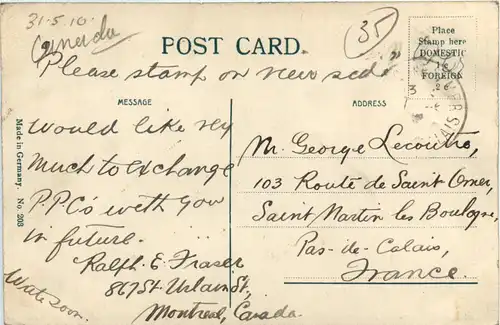 31-5-10.
Canada
35
POST CARD.
Place
Stamp here
DOMESTIC
1c
FOREIGN
2c
"Please stamp on view side"
MESSAGE
ADDRESS
Made in Germany. No. 208
Would like very
Much to exchange
P.P.C's with you
in future.
Ralph. E. Fraser
867 St. Urbain St,
Montreal, Canada.
Write soon.
M. George Lecoutre,
103 Route de Saint Omer,
Saint Martin les Boulogne,
Pas-de-Calais,
France.